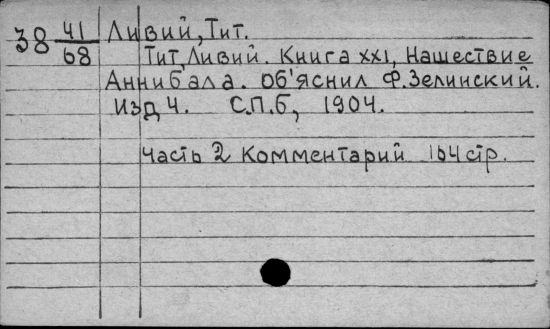 38 41/68 Ливий, Тит.
Тит, Ливий. Книга XXI, Нашествие
Аннибала. Об'яснил Ф. Зелинский.
Изд 4. С.П.б, 1904.
Часть 2 Комментарий 164 стр.